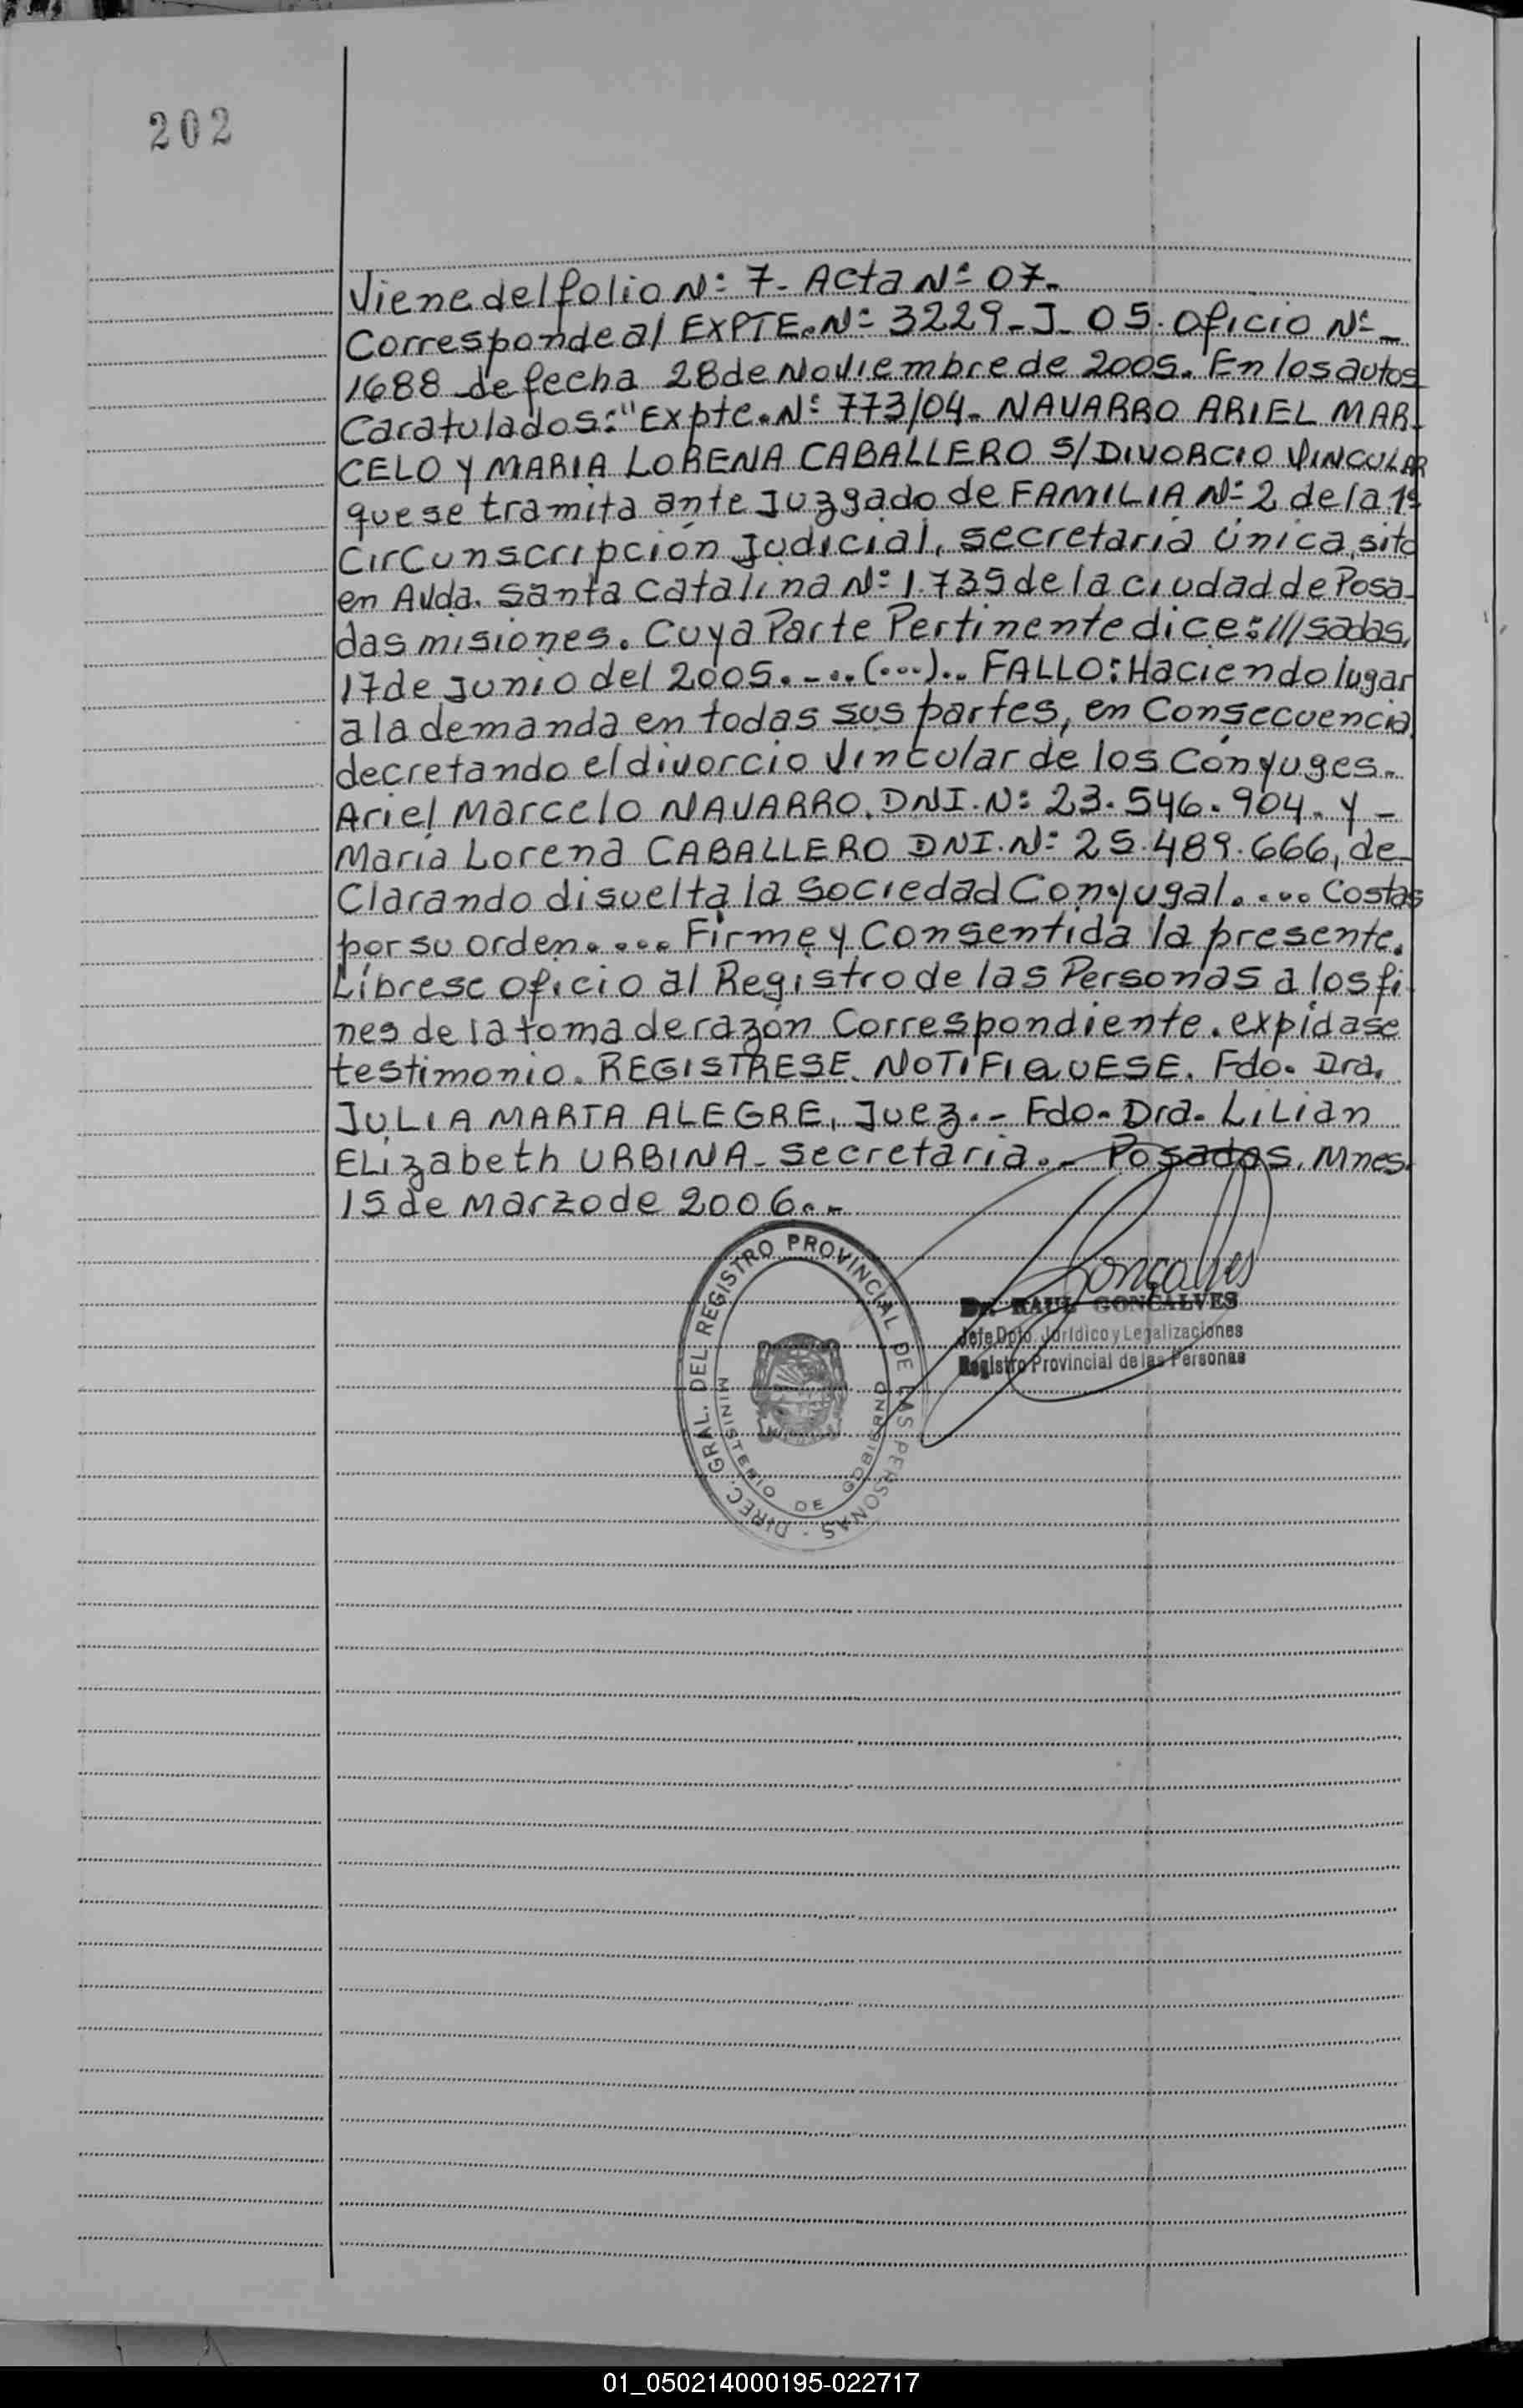 202
Viene del folio Nº 7. Acta Nº 07.
Corresponde al EXPTE. Nº 3229-J-05. Oficio Nº-
1688 de fecha 28 de Noviembre de 2005. En los autos
Caratulados: "Expte. Nº 773/04. NAVARRO ARIEL MAR-
CELO Y MARIA LORENA CABALLERO S/ DIVORCIO VINCULAR
que se tramita ante Juzgado de FAMILIA Nº 2 de la 1º
Circunscripción Judicial, secretaria Única, sito
en Avda. Santa Catalina Nº 1.735 de la ciudad de Posa-
das misiones. Cuya Parte Pertinente dice: ///sadas,
17 de Junio del 2005.-..(...).. FALLO: Haciendo lugar
a la demanda en todas sus partes, en Consecuencia,
decretando el divorcio Vincular de los Cónyuges.-
Ariel Marcelo NAVARRO. DNI. Nº 23.546.904. y -
María Lorena CABALLERO DNI. Nº 25.489.666, de-
Clarando disuelta la Sociedad Conyugal.... Costas
por su orden.... Firme y Consentida la presente.
Líbrese oficio al Registro de las Personas a los fi-
nes de la toma de razón Correspondiente. expídase
testimonio. REGISTRESE. NOTIFIQUESE. Fdo. Dra.
JULIA MARTA ALEGRE, Juez.- Fdo- Dra. LiLian
ELizabeth URBINA- Secretaria.- Posadas. Mnes.
15 de Marzo de 2006.-
DIREC. GRAL. DEL REGISTRO PROVINCIAL DE LAS PERSONAS
MINISTERIO DE GOBIERNO
Gonçalves
Dr. RAUL GONCALVES
Jefe Dpto. Jurídico y Legalizaciones
Registro Provincial de las Personas
01_050214000195-022717